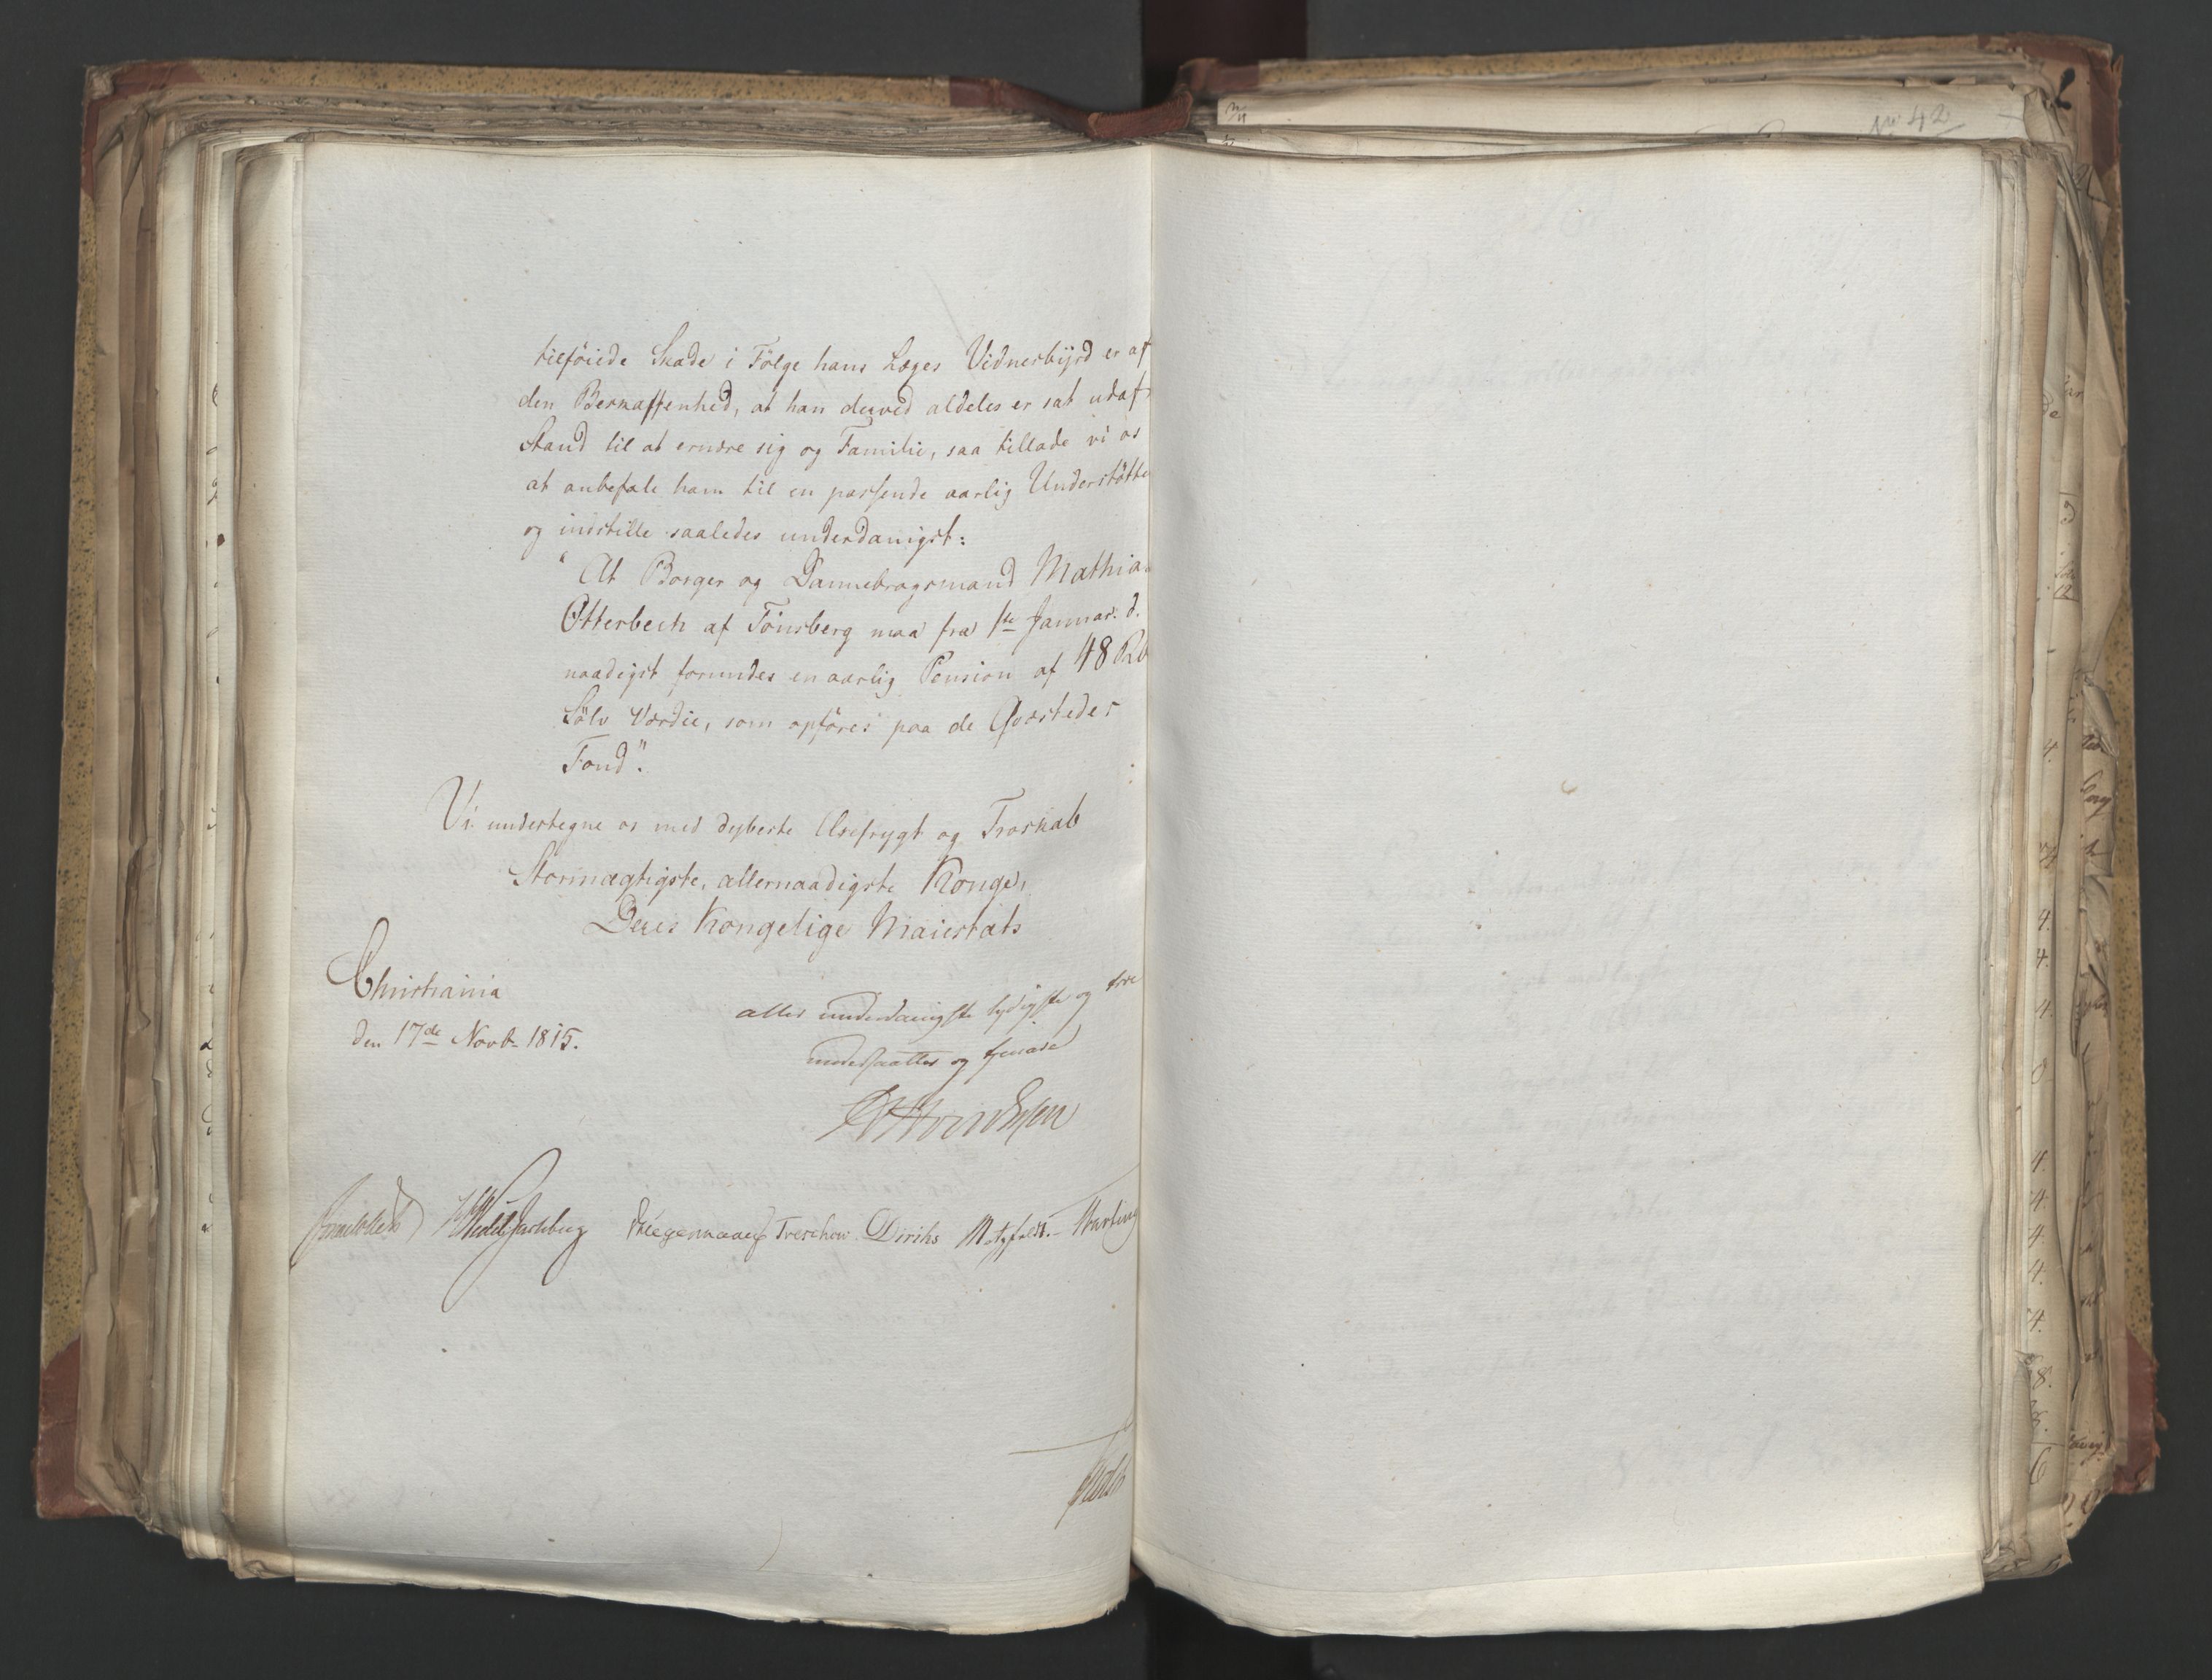 No 42
tilföiede Skade i Fölge hans Læges Vidnesbÿrd er af
den Beskaffenhed, at han derved aldeles er sat udaf
Stand til at ernære sig og Familie, saa tillade vi os
at anbefale ham til en passende aarlig Understötte
og indstille saaledes underdanigst:
"At Borger og Dannebrogsmand Mathias
Otterbech af Tönsberg maa fra 1ste Januar. d.
naadigst forundes en aarlig Pension af 48 Rb
Sölv Værdie, som opföres paa de Qvæstedes
Fond".
Vi undertegne os med dybeste Ærefrygt og Troskab
Stormægtigste, allernaadigste Konge,
Deres Kongelige Maiestæts
Christiania
den 17de Novbr 1815.
aller underdanigste lydigste og troe
undersaatter og tjenere
Sommerhielm HWedel Jarlsberg Krieg Treschow Diriks Motzfeldt.